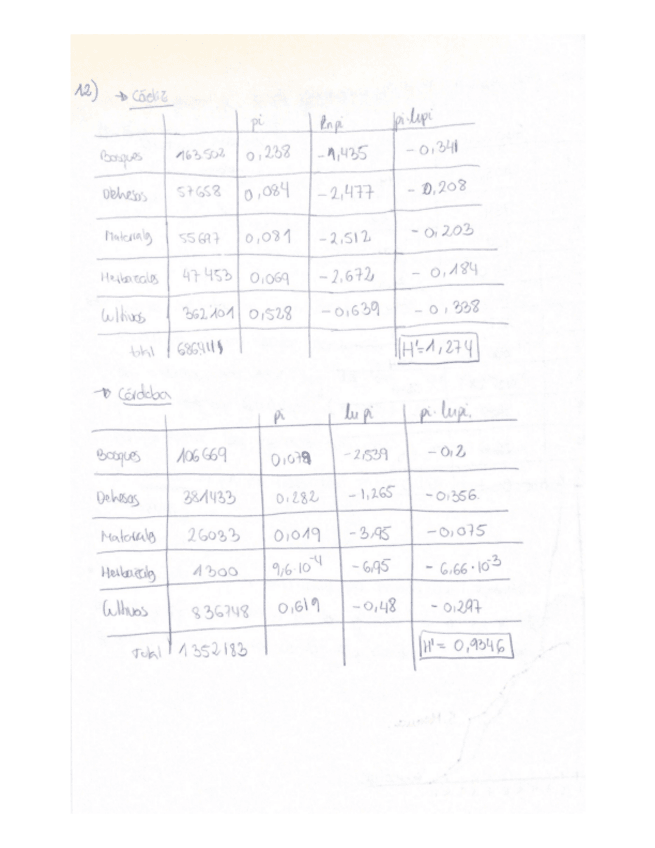 12) → Cádiz
pi lnpi pi·lnpi
Bosques 163502 0,238 -1,435 -0,341
Dehesas 57658 0,084 -2,477 -0,208
Matorrales 55697 0,081 -2,512 -0,203
Herbazales 47453 0,069 -2,672 -0,184
Cultivos 362101 0,528 -0,639 -0,338
total 686411 H'=1,274
→ Córdoba
pi ln pi pi·lnpi.
Bosques 106669 0,079 -2,539 -0,2
Dehesas 381433 0,282 -1,265 -0,356.
Matorrales 26033 0,019 -3,95 -0,075
Herbazales 1300 9,6·10⁻⁴ -6,95 -6,66·10⁻³
Cultivos 836748 0,619 -0,48 -0,297
Total 1352183 H'= 0,9346